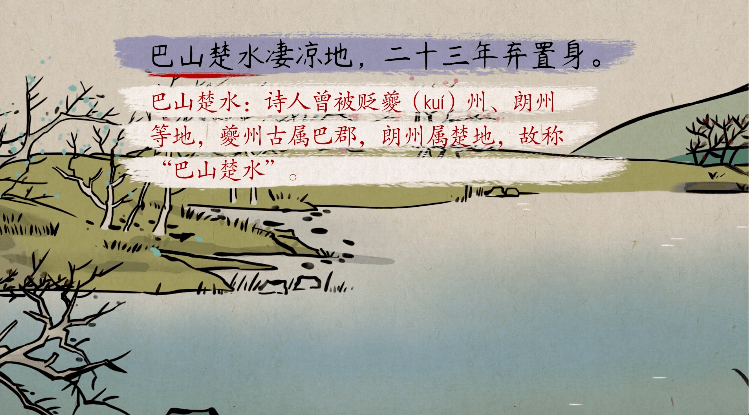 巴山楚水凄凉地，二十三年弃置身。
巴山楚水：诗人曾被贬夔（kuí）州、朗州
等地，夔州古属巴郡，朗州属楚地，故称
“巴山楚水”。